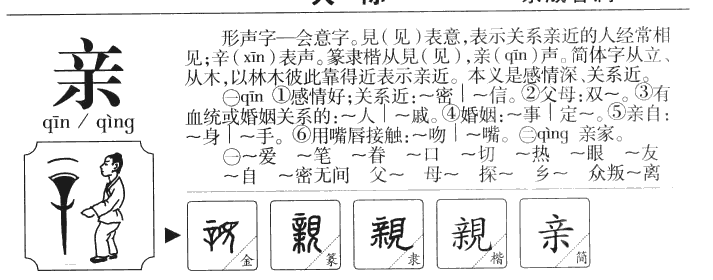 亲
qīn / qìng
形声字—会意字。見(见)表意,表示关系亲近的人经常相
见;辛(xīn)表声。篆隶楷从見(见),亲(qīn)声。简体字从立、
从木,以林木彼此靠得近表示亲近。本义是感情深、关系近。
㊀qīn ①感情好;关系近:～密│～信。②父母:双～。③有
血统或婚姻关系的:～人│～戚。④婚姻:～事│定～。⑤亲自:
～身│～手。⑥用嘴唇接触:～吻│～嘴。㊁qìng 亲家。
㊀～爱 ～笔 ～眷 ～口 ～切 ～热 ～眼 ～友
～自 ～密无间 父～ 母～ 探～ 乡～ 众叛～离
金 親 篆 親 隶 親 楷 亲 简